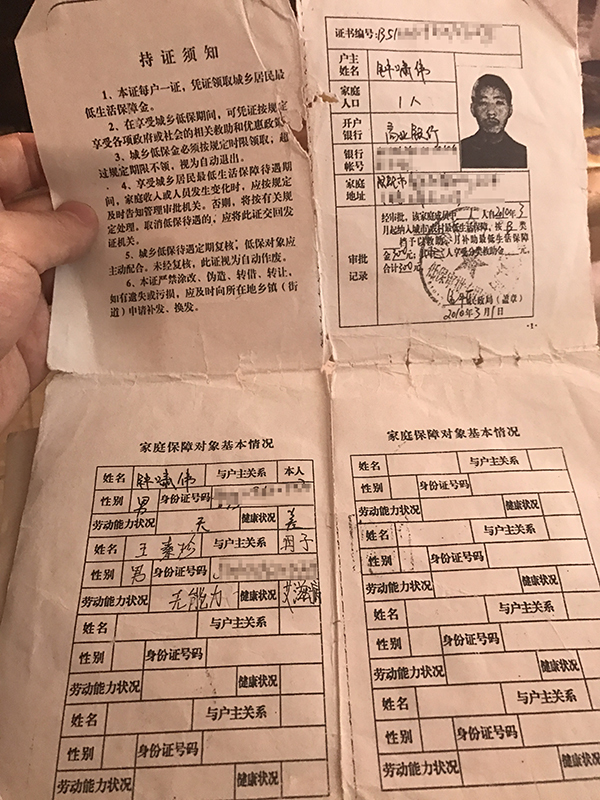 持证须知
1、本证每户一证，凭证领取城乡居民最
低生活保障金。
2、在享受城乡低保期间，可凭证按规定
享受各项政府或社会的相关救助和优惠政策。
3、城乡低保金必须按规定时限领取，超
过规定期限不领，视为自动退出。
4、享受城乡居民最低生活保障待遇期
间，家庭收入或人员发生变化时，应按规定
及时告知管理审批机关。否则，将按有关规
定处理。取消低保待遇的，应将此证交回发
证机关。
5、城乡低保待遇定期复核，低保对象应
主动配合。未经复核，此证视为自动作废。
6、本证严禁涂改、伪造、转借、转让，
如有遗失或污损，应及时向所在地乡镇（街
道）申请补发、换发。
证书编号：B51
户主
姓名
家庭
人口
1人
开户
银行
商业银行
银行
帐号
家庭
地址
审批
记录
经审批，该家庭成员中 1 人自2010年3
月起纳入城市农村最低生活保障，按B类
档予以救助，月补助最低生活保障
人享受分类救助金 元，
合计300元。
民政局（盖章）
2010年3月1日
家庭保障对象基本情况
姓名 与户主关系 本人
性别 男 身份证号码
劳动能力状况 无 健康状况 差
姓名 王 与户主关系
性别 男 身份证号码
劳动能力状况 无能力 健康状况 艾滋病
姓名 与户主关系
性别 身份证号码
劳动能力状况 健康状况
姓名 与户主关系
性别 身份证号码
劳动能力状况 健康状况
家庭保障对象基本情况
姓名 与户主关系
性别 身份证号码
劳动能力状况 健康状况
姓名 与户主关系
性别 身份证号码
劳动能力状况 健康状况
姓名 与户主关系
性别 身份证号码
劳动能力状况 健康状况
姓名 与户主关系
性别 身份证号码
劳动能力状况 健康状况